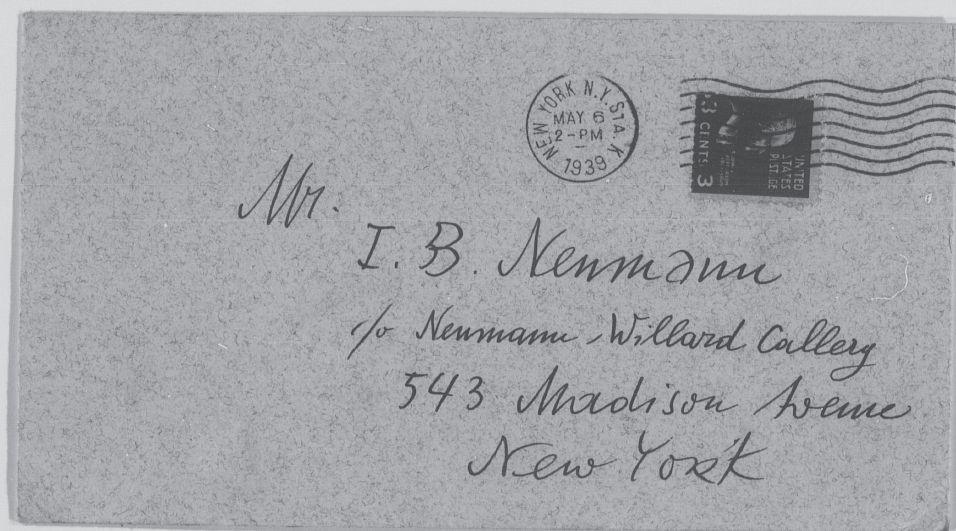 NEW YORK N.Y. STA. K
MAY 6
2-PM
1939
3 CENTS 3
UNITED
STATES
POSTAGE
Mr.
I. B. Neumann
c/o Neumann-Willard Gallery
543 Madison Avenue
New York